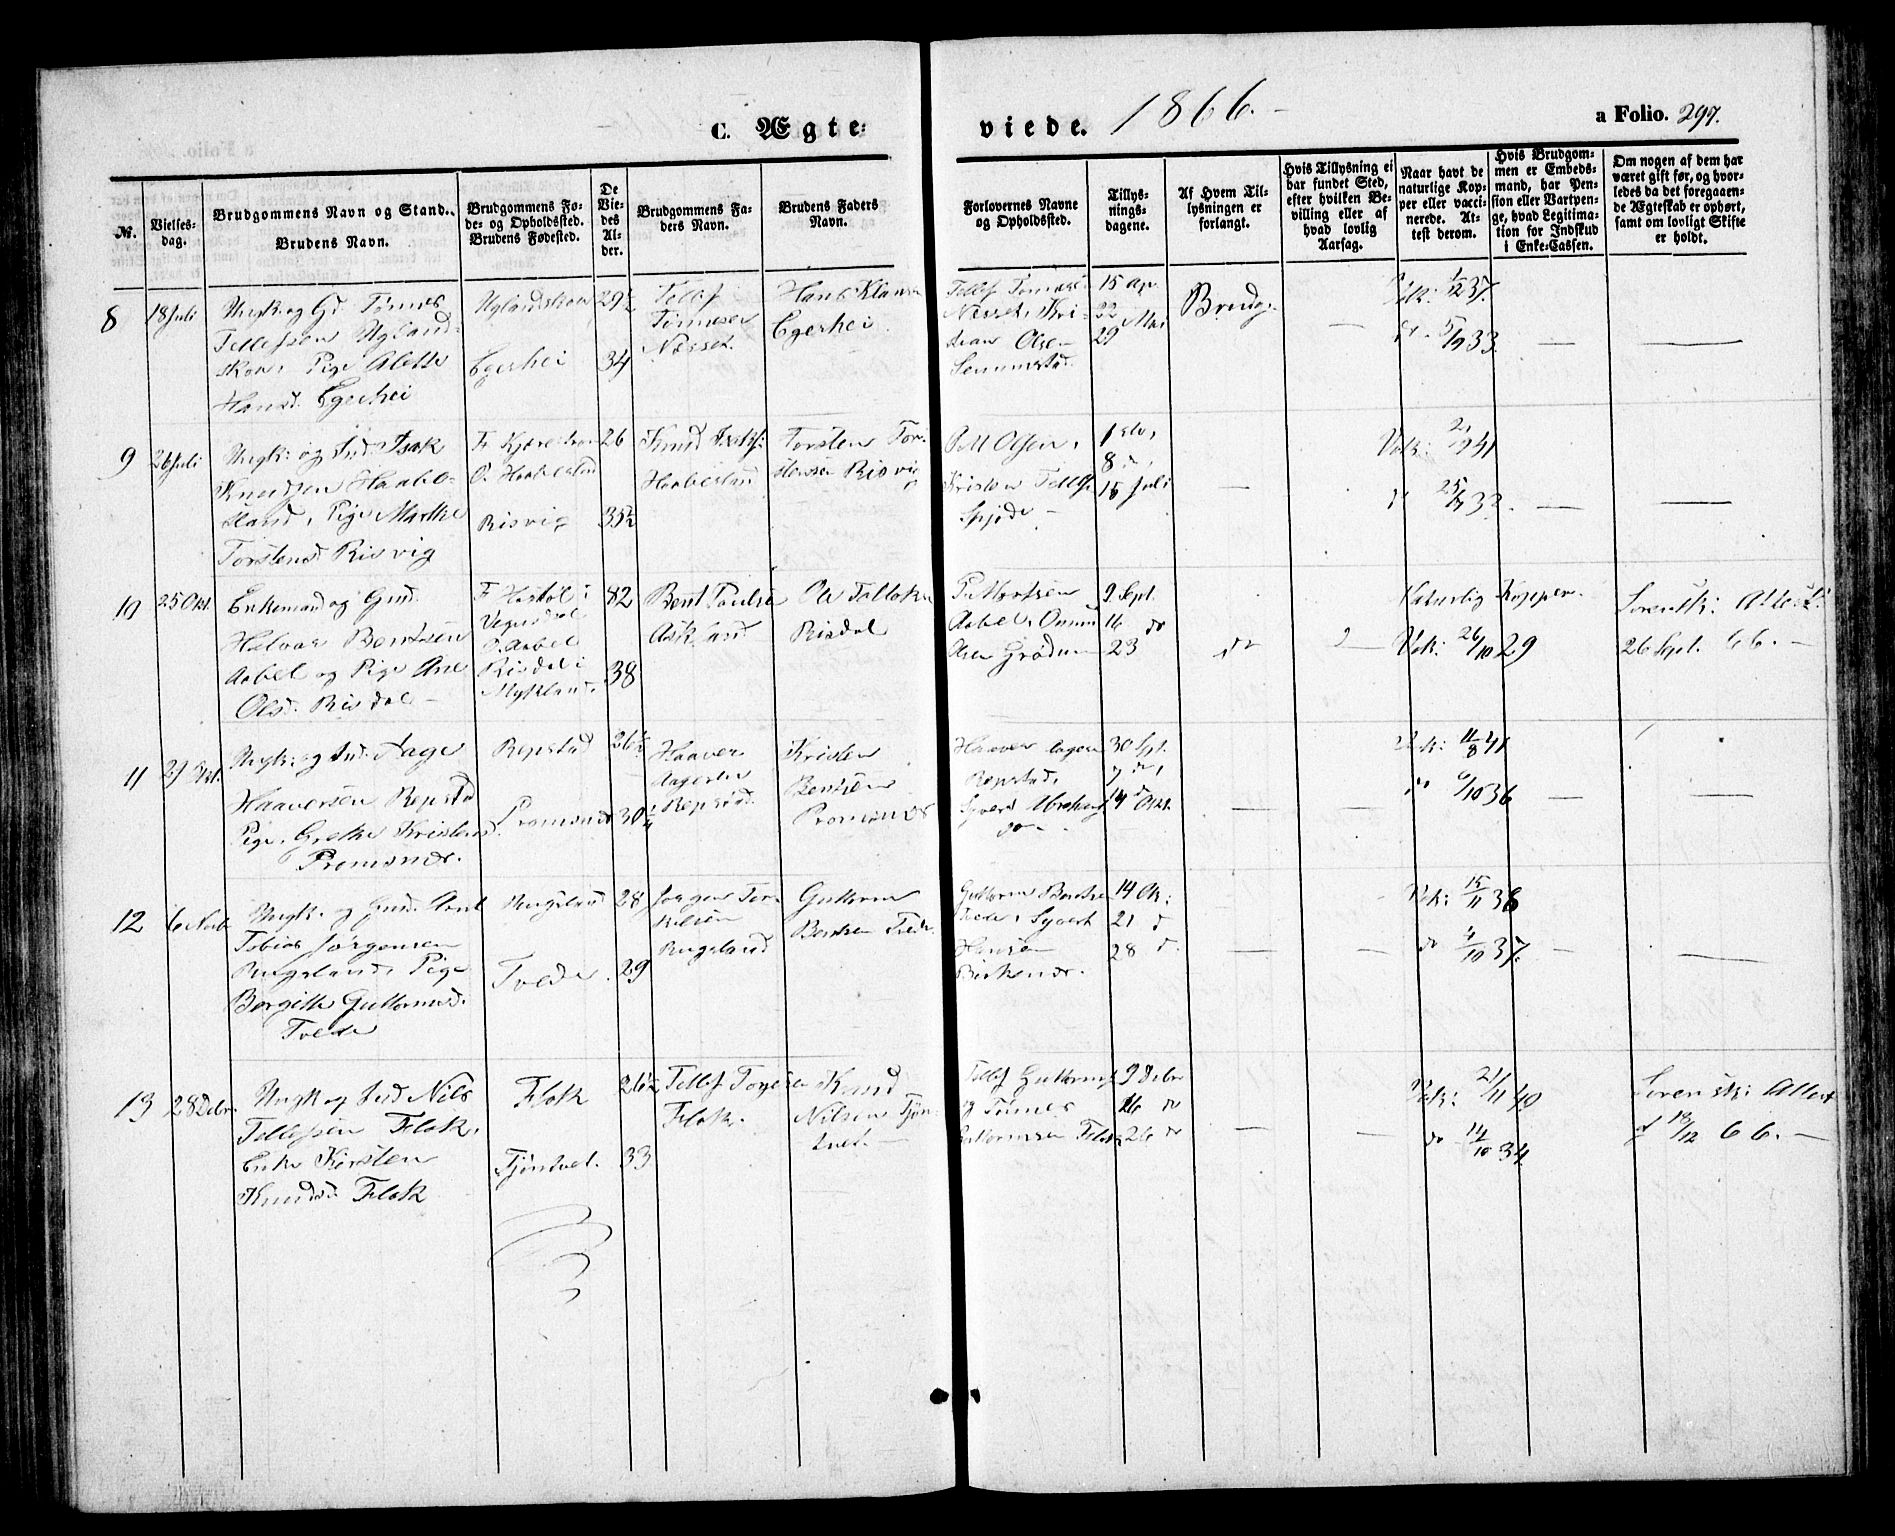 C. Ægte-
viede.
1866.
a Folio. 297.
№.
Vielses-
dag.
Brudgommens Navn og Stand.
Brudens Navn.
Brudgommens Fø-
de- og Opholdssted.
Brudens Fødested.
De
Vie-
des
Al-
der.
Brudgommens Fa-
ders Navn.
Brudens Faders
Navn.
Forlovernes Navne
og Opholdssted.
Tillys-
nings-
dagene.
Af Hvem Til-
lysningen er
forlangt.
Hvis Tillysning ei
har fundet Sted,
efter hvilken Be-
villing eller af
hvad lovlig
Aarsag.
Naar havt de
naturlige Kop-
per eller vacci-
nerede. At-
test derom.
Hvis Brudgom-
men er Embeds-
mand, har Pen-
sion eller Vartpen-
ge, hvad Legitima-
tion for Indskud
i Enke-Cassen.
Om nogen af dem har
været gift før, og hvor-
ledes da det foregaaen-
de Ægteskab er ophørt,
samt om lovligt Skifte
er holdt.
8
18 Juli
Ungk. og Gd Tømes
Tellefsen Ugland-
skov, Pige Alette
Hansd. Egerhei
Uglandskov
Egerhei
29½
34
Tellef
Tømesen
Næsset
Hans Klausen
Egerhei.
Tellef Tømesen
Næsset, Kri-
stian Olsen
15 Apr.
22
29 Mai
Brudg.
Vak: 1/12 37.
do 5/9 33.
9
26 Juli
Ungk: og Ind. Isak
Knudsen Haabe-
sland, Pige Marthe
Torstensd. Risvig
F. Kjærestrøm
O. Haabesland
Risvig
26
35½
Knud Isaks:
Haabesland
Torsten Tor-
stensen Risvig
Olsen,
Kristen Tellefs.
1ste,
8 d,
15 Juli
Vak: 2/9 41
do 25/9 32.
10
25 Okt.
Enkemand og Gmd.
Halvor Bentsen
Aabel og Pige Ane
Olsd. Risdal
F. Hastøl i
Vegusdal
O. Aabel
Risdal i
Mykland.
82
38
Bent Paulsen
Askland
Ole Tellefsen
Risdal
Aabel, Omund
Olsen Grødum
9 Sept.
16 do
23
do
Naturlig Kopper.
Vak: 26/10 29
Sorensk: Attest
26 Sept. 66.
11
27 Okt.
Ungk: og Ind. Aage
Haaversen Repstad
Pige, Grethe Kristensd.
Promsnæs.
Repstad
Promsnæs
26½
30¼
Haaver
Aagesen
Repstad
Kristen
Bentsen
Promsnæs
Haaver Aagesen
Repstad,
Syvert Abrahams.
do
30 Spt.
7 do,
14 Okt.
Vak: 11/8 41
do 6/10 36
12
6 Novb
Ungk. og Gmd. Arnt
Tobias Jørgensen
Rugsland, Pige
Borgith Guttormsd.
Tvede
Rugsland
Tvede
28
29
Jørgen Ter-
kelsen
Rugsland
Guttorm
Bentsen Tvede.
Guttorm Bentsen
Tvede, Syvert
Hansen
Birkenæs.
14 Ok:
21 d
28 d.
Vak: 15/11 38
do 4/10 37.
13
28 Debr.
Ungk og Ind Nils
Tellefsen Flak,
Enke Kirsten
Knudsd. Flak
Flak
Tjøntvet.
26½
33
Tellef Torjesen
Flak.
Knud
Nilsen Tjøn-
tvet.
Tellef Guttorms.
og Tømes
Guttormsen Flak
9 Debr
16 do
26 do
Vak: 21/11 40
do 14/10 34.
Sorensk: Attest
af 19/12 66.